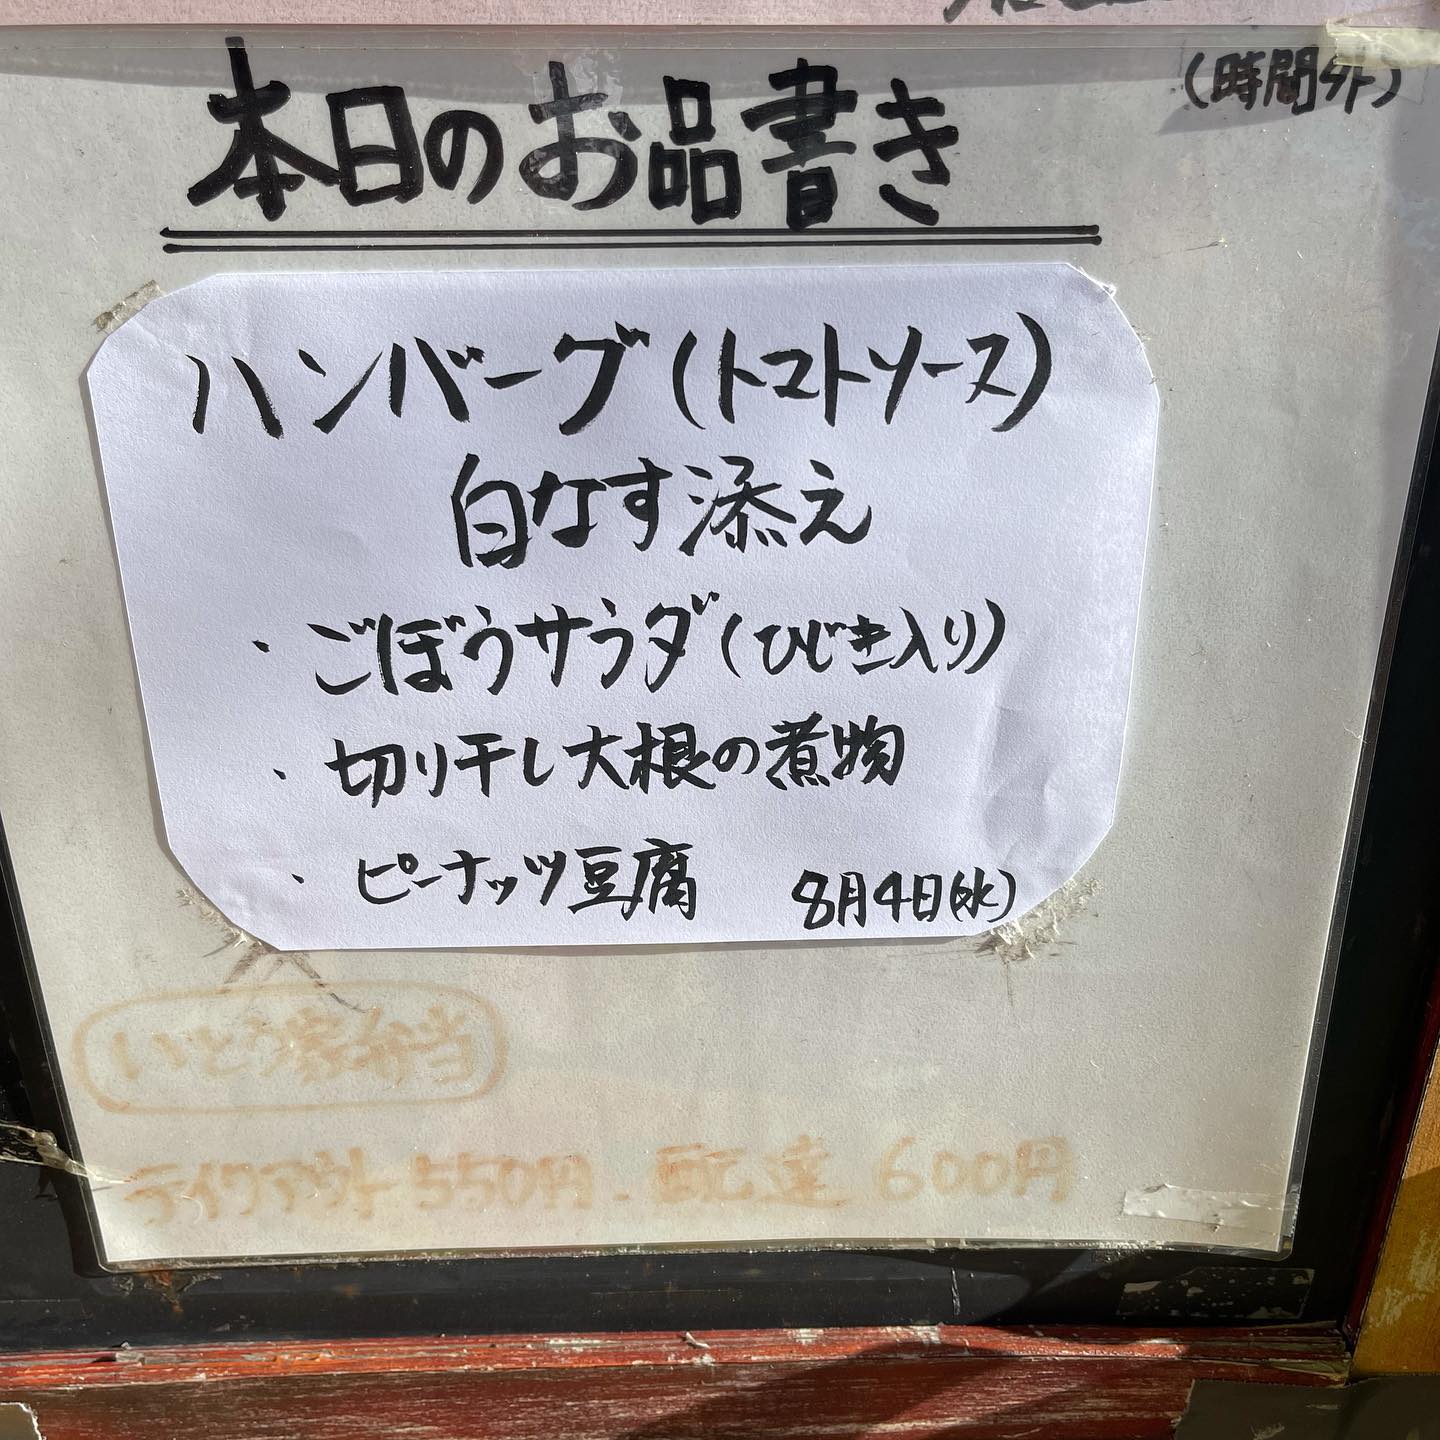 (時間外)
本日のお品書き
ハンバーグ(トマトソース)
白なす添え
・ごぼうサラダ(ひじき入り)
・切り干し大根の煮物
・ピーナッツ豆腐 8月4日(水)
いとう家弁当
テイクアウト550円.配達600円